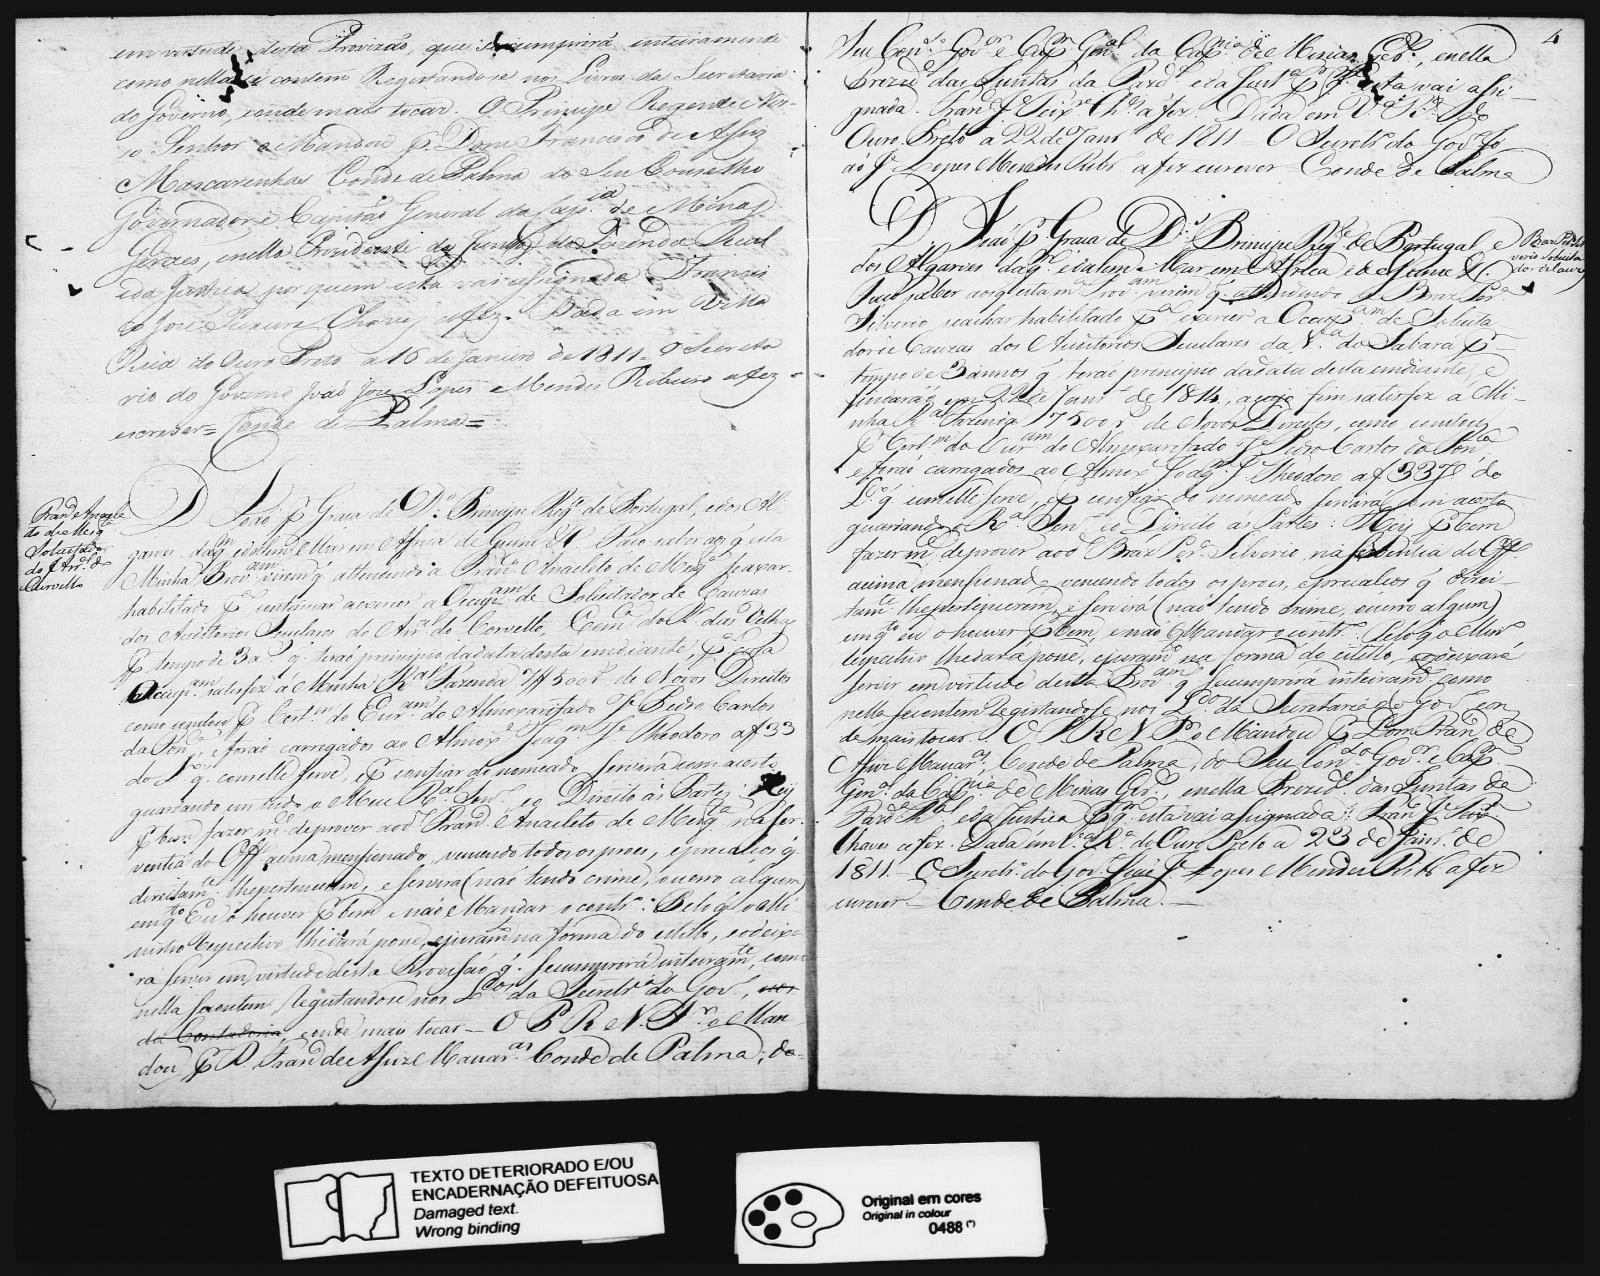 em virtude desta Provizão, que se cumprirá inteiramente
como nella se contem Registandose nos Livros da Secretaria
do Governo, e onde mais tocar. O Principe Regente Nos-
so Senhor o Mandou p. Dom Francisco de Assiz
Mascarenhas Conde de Palma do Seu Conselho
Governador e Capitão General da Cap.nia de Minas
Geraes, e nella Prezidente das Juntas da Fazenda Real
e da Justiça por quem esta vai assignada. Francis
co José Teixeira Chaves a fez. Dada em Villa
Rica do Ouro Preto a 16 de Janeiro de 1811 = O Secreta
rio do Governo João Joze Lopes Mendes Ribeiro a fez
escrever = Conde de Palma =
Fran.co Anacle
to de Meiq.ta
Solicitador
do Arr.al do
Curvello
D. João p. Graça de D.s Principe Reg.e de Portugal, e dos Al-
garves, daq.m e dalem Mar em Africa de Guiné &c. Faço saber aos q. esta
Minha Prov.am virem q. attendendo a Fran.co Anacleto de Meiq.ta se axar
habilitado p.a continuar a exercer a Ocup.am de Solicitador de Cauzas
dos Auditorios Seculares do Arr.al do Corvello, Com.ca do R.o das Velhas
p. tempo de 3 a.s q. terão principio da data desta em diante, p. cuja
Ocup.am satisfez á Minha R.al Fazenda 1$500 r.s de Novos Direitos
como constou p. Cert.am do Escr.am do Almoxarifado J.e Pedro Carlos
da Fon.ca, e forão carregados ao Almox.e Joaq.m J.e Theodoro a f 33
do L.o q. com elle serve, e p. confiar do nomeado servirá com acerto
guardando em tudo o Meu R.al Serv.o e o Direito ás Partes: Hey
p. bem fazer m.ce de prover ao d.o Fran.co Anacleto de Meiq.ta na ser-
ventia do Off.o acima mensionado, vencendo todos os proes, e precalços q.
direitam.te lhe pertencerem, e servirá (não tendo crime, ou erro algum)
em q.to Eu o houver p. bem e não Mandar o contr.o: Pelo q. o Mi
nistro respectivo lhe dará posse, e juram.to na forma do estillo, e o deixa
rá servir em virtude desta Provissão q. se cumprirá inteiram.te, como
nella se contem, registandose nos L.os da Secretr.a do Gov.o, nos
da Contadoria, e onde mais tocar — O P. R. N. S.r o Man
dou p. D. Fran.co de Assiz e Mascar.as Conde de Palma, do
4
Seu Con.o Gov.or e Cap.m Gen.al da Cap.nia de Minas Ger.s, e nella
Prezid.e das Juntas da Fazd.a e da Just.a p. q.m esta vai assi-
gnada. Fran.co J.e Teix.ra Ch.es a fez. Dada em V.a R.ca do
Ouro Preto a 22 de Janr.o de 1811 — O Secretr.o do Gov.o Jo
ão J.e Lopes Mendes Ribr.o a fez escrever — Conde de Palma
Braz Per.a Sil
verio Solicita
dor de Cauzas
D. João p. Graça de D.s Principe Reg.e de Portugal e
dos Algarves daq.m e dalem Mar em Africa e de Guine &c.
Faço saber aos q. esta m.a Prov.am virem q. attendendo a Braz Per.a
Silverio se achar habilitado p.a exercer a Ocup.am de Solicita
dor de Cauzas dos Auditorios Seculares da V.a do Sabará p.r
tempo de 3 annos q. terão principio da data desta em diante, e
findarão em 22 de Janr.o de 1814, a cujo fim satisfez á Mi-
nha R.al Fazenda 17500 r.s de Novos Direitos, como constou
p. Cert.am do Escr.am do Almoxarifado J.e Pedro Carlos da Fon.ca
e forão carregados ao Almox.e Joaq.m J.e Theodoro a f 33 do
L.o q. com elle serve, e p. confiar do nomeado servirá com acerto
guardando o R.al Serv.o e o Direito as Partes: Hey p. bem
fazer m.ce de prover ao d.o Bráz Per.a Silverio na serventia do Off.o
acima mensionado vencendo todos os proes, e precalços q. direi-
tam.te lhe pertencerem, e servirá (não tendo crime, ou erro algum)
em q.to eu o houver p. bem, e não Mandar o contr.o. Pelo q. o Min.o
respectivo lhe dará posse, e juram.to na forma do estillo, e o deixará
servir em virtude desta Prov.am q. se cumprirá inteiram.te como
nella se contem registandose nos L.os da Secretaria do Gov.o e on
de mais tocar. O P. R. N. S.r o Mandou p. Dom Fran.co de
Assiz Mascar.as Conde de Palma, do Seu Con.o Gov.or e Cap.m
Gen.al da Cap.nia de Minas Ger.s, e nella Prezid.e das Juntas da
Fazd.a R.al e da Justiça p. q.m esta vai assignada: Fran.co J.e Teix.ra
Chaves a fez. Dada em V.a R.a do Ouro Preto a 23 de Janr.o de
1811 — O Secretr.o do Gov.o João J.e Lopes Mendes Ribr.o a fez
escrever — Conde de Palma. —
TEXTO DETERIORADO E/OU
ENCADERNAÇÃO DEFEITUOSA
Damaged text.
Wrong binding
Original em cores
Original in colour
0488 (*)